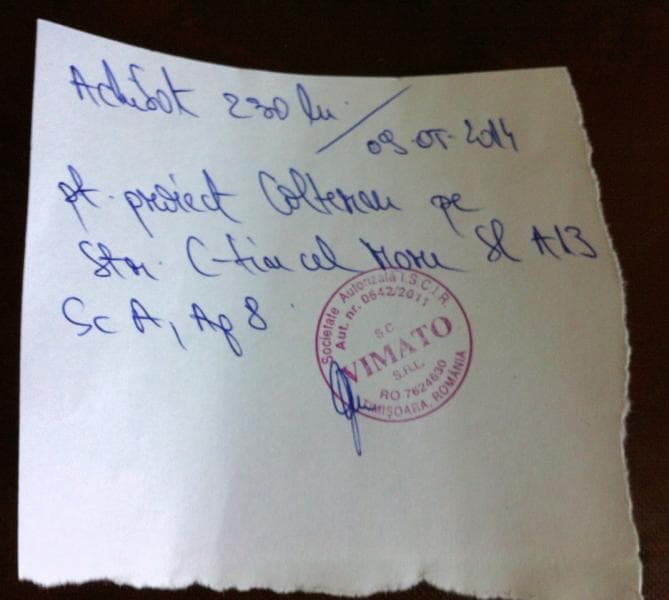 Achitat 230 lei / 09.05.2014
pt. proiect Coltescu pe
Str. C-tin cel Mare Bl A13
Sc A, Ap 8
Societate Autorizată I.S.C.I.R.
Aut. nr. 0642/2011
S.C.
VIMATO
S.R.L.
RO 7624630
TIMIȘOARA, ROMÂNIA